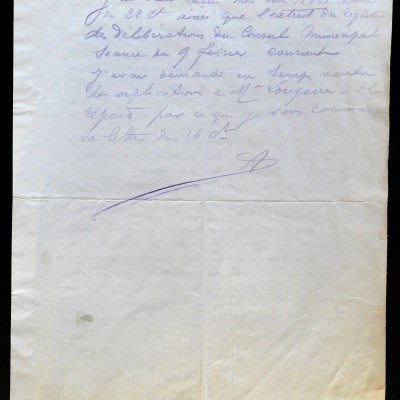 J'ai
du 22 Ct ainsi que l'extrait du registre
des délibérations du Conseil Municipal
Séance du 9 février courant
J'avais demandé en temps voulu
des explications a Mr
répond, par ce que je vous
sa lettre du 16 Ct